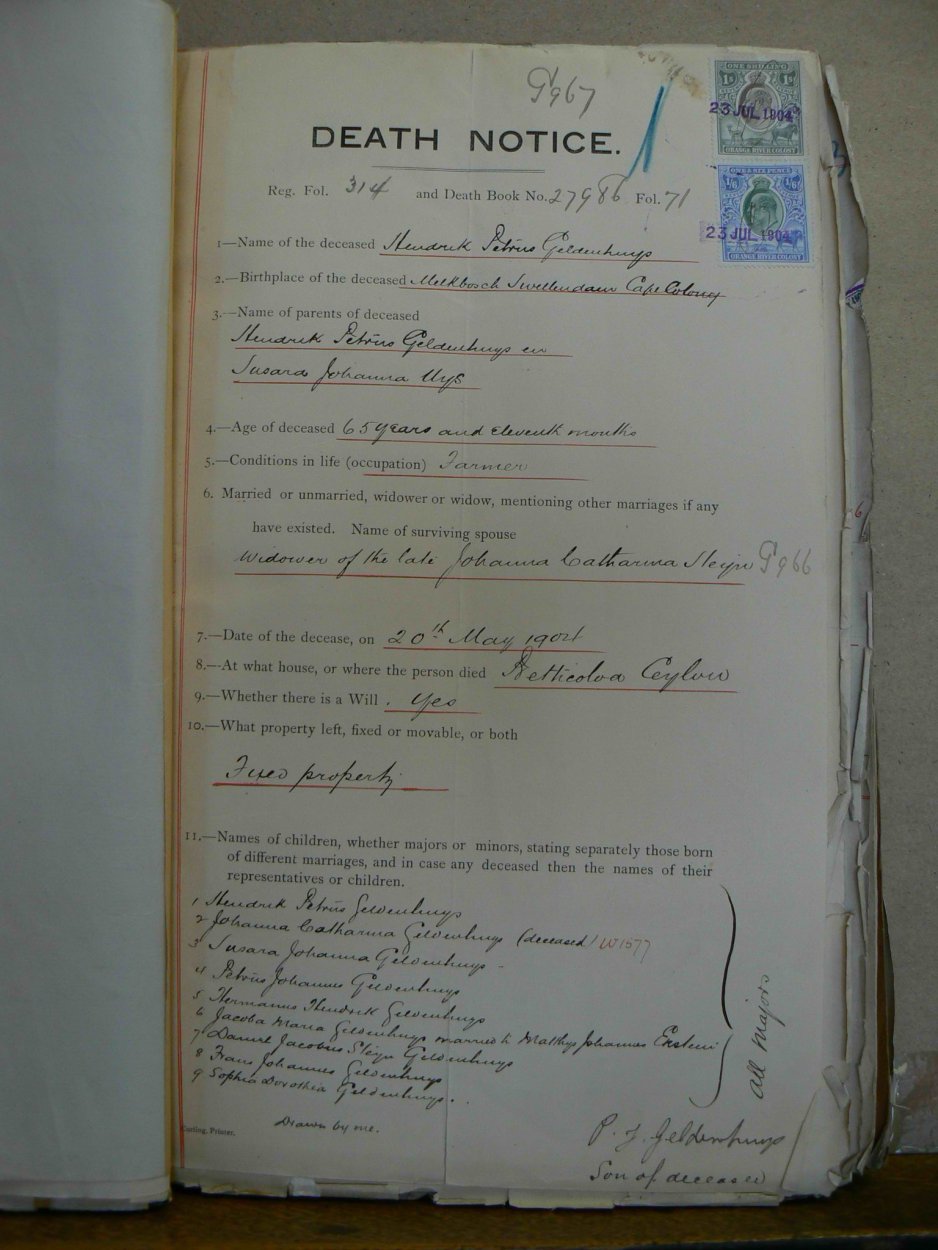 G967
DEATH NOTICE.
Reg. Fol. 314 and Death Book No. 27986 Fol. 71
ONE SHILLING
1s 1s
23 JUL 1904
ORANGE RIVER COLONY
ONE & SIX PENCE
1/6 1/6
23 JUL 1904
ORANGE RIVER COLONY
1—Name of the deceased Hendrik Petrus Geldenhuys
2.—Birthplace of the deceased Melkbosch Swellendam Cape Colony
3.—Name of parents of deceased
Hendrik Petrus Geldenhuys en
Susara Johanna Uys
4.—Age of deceased 65 years and eleventh months
5.—Conditions in life (occupation) Farmer
6. Married or unmarried, widower or widow, mentioning other marriages if any
have existed. Name of surviving spouse
Widower of the late Johanna Catharina Steyn G966
7.—Date of the decease, on 20th May 1901
8.—At what house, or where the person died Ceylon
9.—Whether there is a Will. Yes
10.—What property left, fixed or movable, or both
Fixed property
11.—Names of children, whether majors or minors, stating separately those born
of different marriages, and in case any deceased then the names of their
representatives or children.
1 Hendrik Petrus Geldenhuys
2 Johanna Catharina Geldenhuys (deceased) W1577
3 Susara Johanna Geldenhuys
4 Petrus Johannes Geldenhuys
5 Hermanus Hendrik Geldenhuys
6 Jacoba Maria Geldenhuys married to Matthys Johannes
7 Daniel Jacobus Steyn Geldenhuys
8 Frans Johannes Geldenhuys
9 Sophia Dorothia Geldenhuys.
all majors
Curling, Printer.
Drawn by me.
P. J. Geldenhuys
Son of deceased